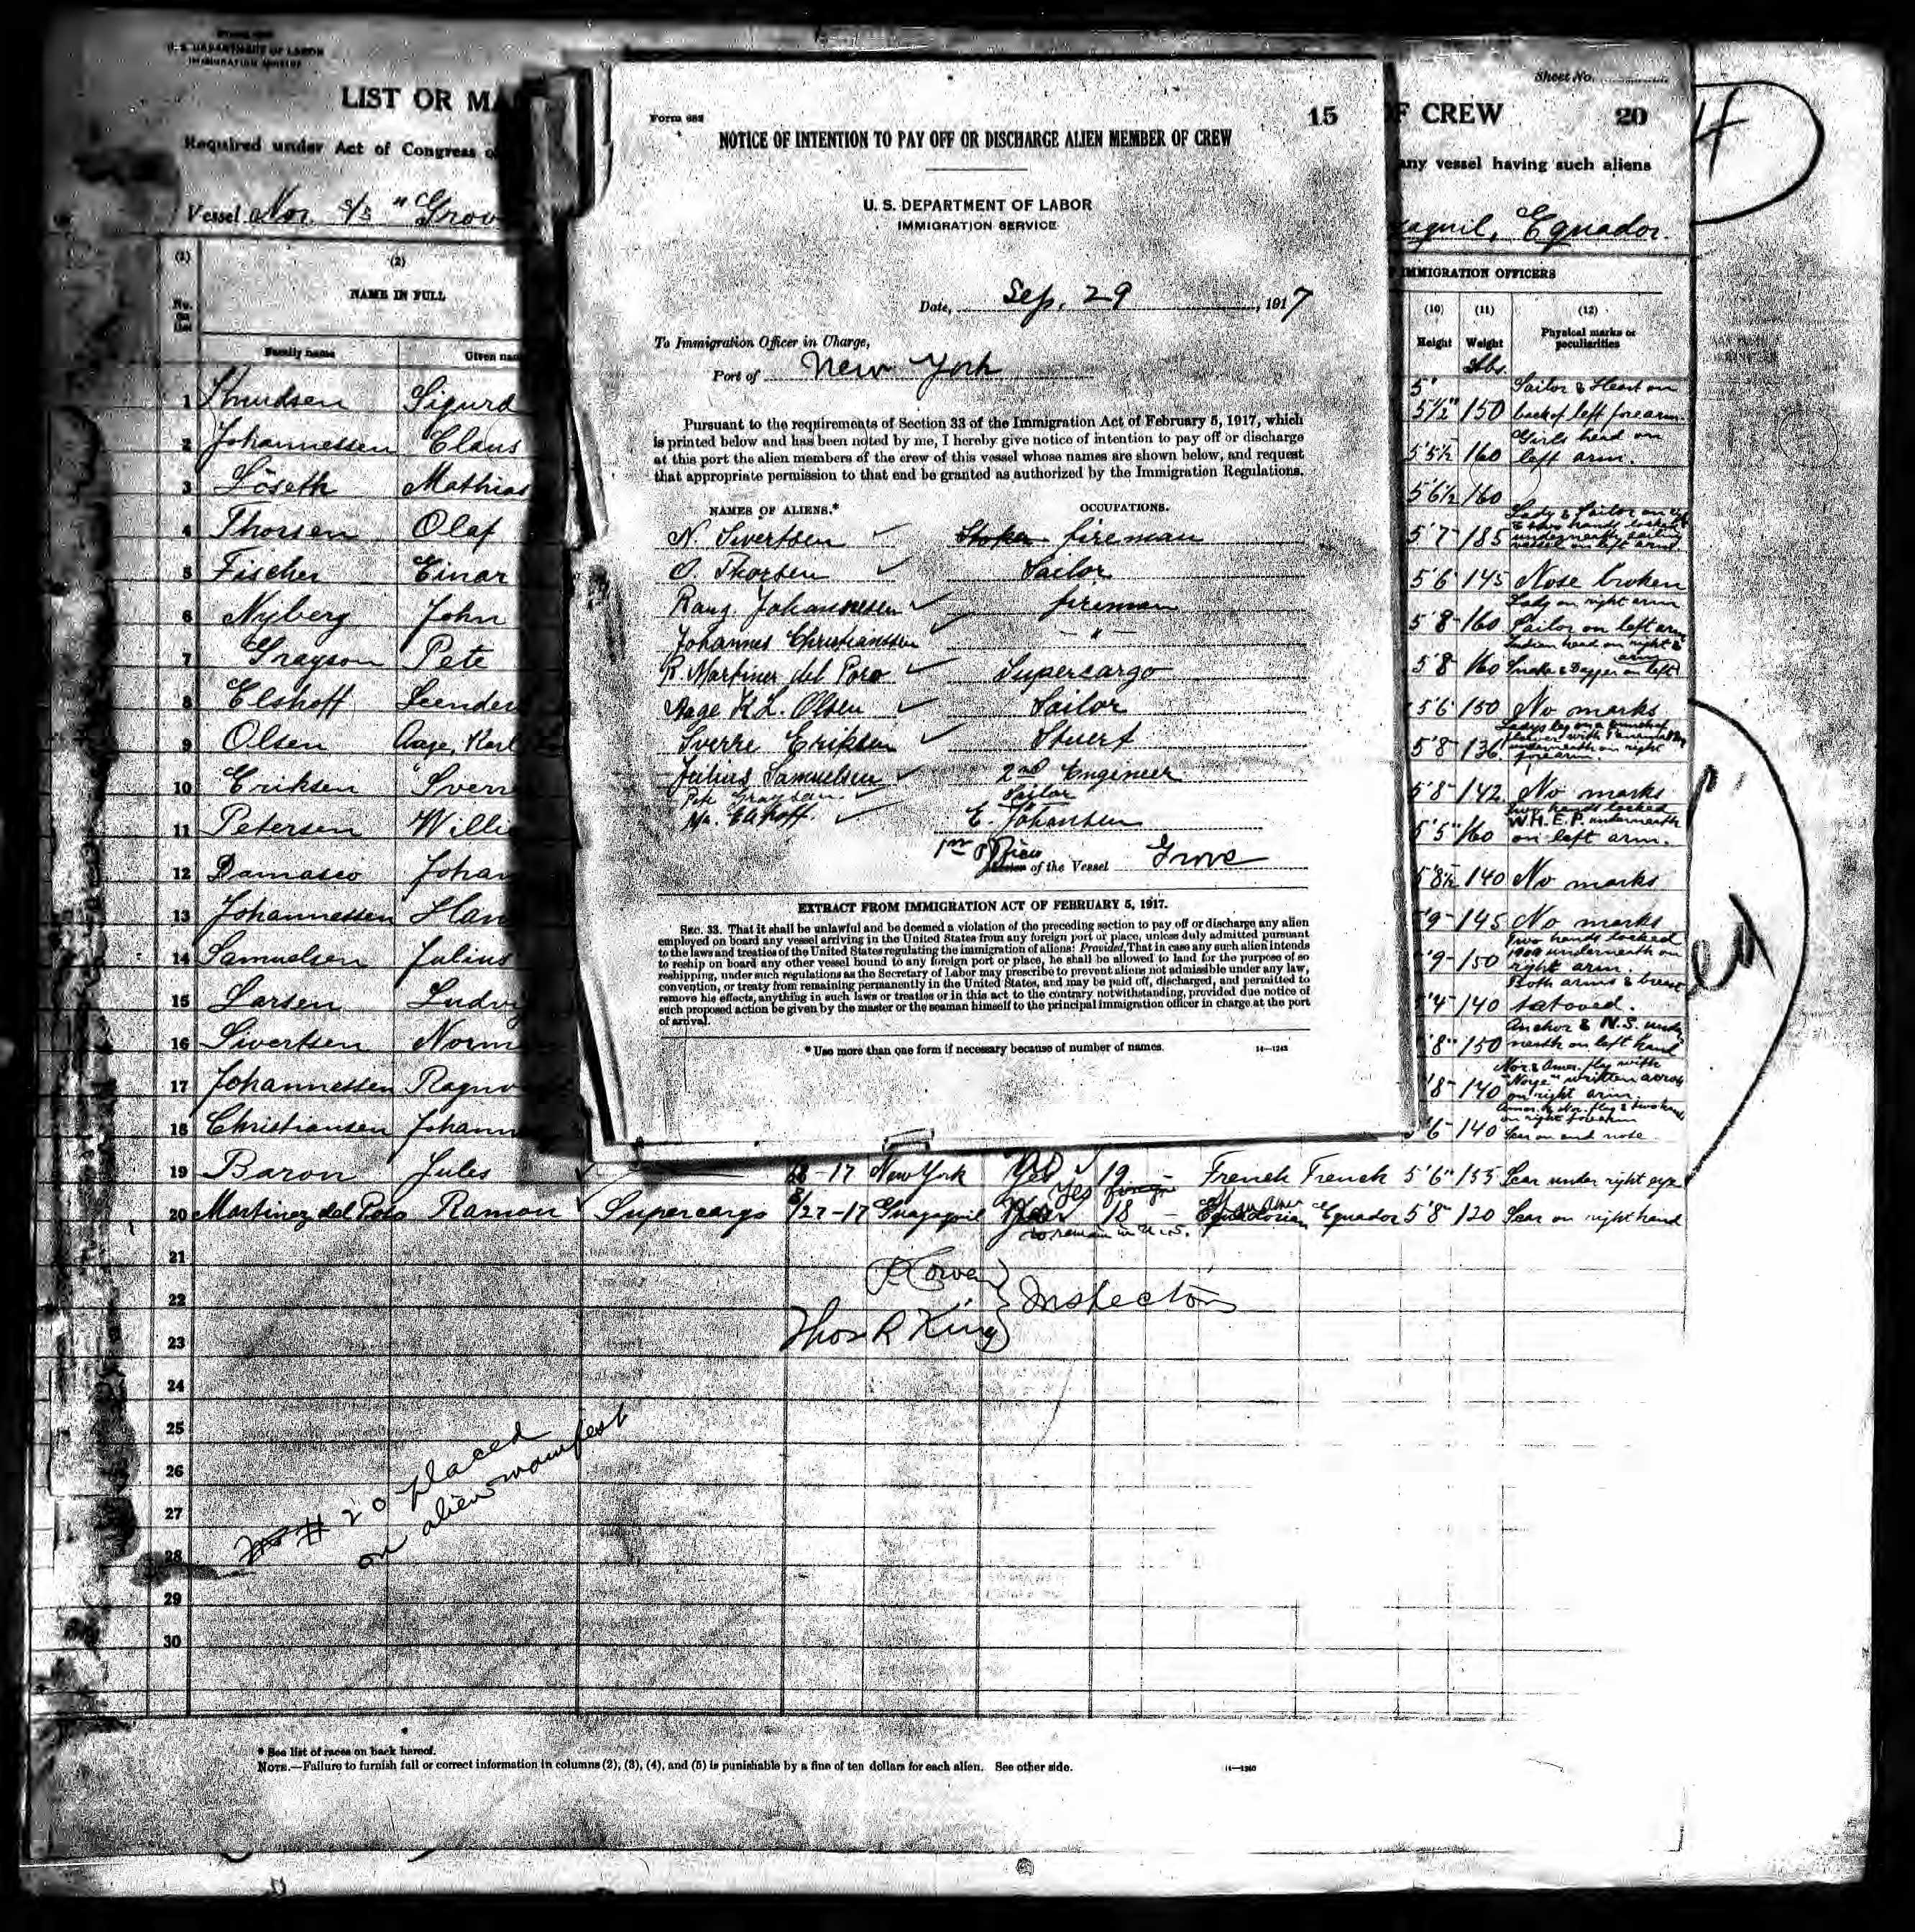 U. S. DEPARTMENT OF LABOR
IMMIGRATION SERVICE
LIST OR MA
Required under Act of Congress o
Vessel Nor. S/S "Grov
(1)
(2)
No. on List
NAME IN FULL
Family name
Given nam
1 Knudsen Sigurd
2 Johannessen Claus
3 Löseth Mathias
4 Thorsen Olaf
5 Fischer Einar
6 Nyberg John
7 Grayson Pete
8 Elshoff Leender
9 Olsen Aage, Karl
10 Eriksen Sverr
11 Petersen Willi
12 Damasco Johan
13 Johannessen Han
14 Samuelsen Julius
15 Larsen Ludvi
16 Sivertsen Norm
17 Johannessen Ragnv
18 Christiansen Johann
19 Baron Jules 17 New York Yes 19 - French French 5'6" 155 Scar under right eye
20 Martinez del Poso Ramon Supercargo 8/27-17 Guayaquil Yes 18 - Equadorian Equador 5'8" 120 Scar on right hand
to remain in U.S.
21
22
23
24
25
26
27
28
29
30
Cowen
Thos R King
Inspectors
# 20 placed
on alien manifest
* See list of races on back hereof.
NOTE.—Failure to furnish full or correct information in columns (2), (3), (4), and (5) is punishable by a fine of ten dollars for each alien. See other side.
14—1240
Form 688
15
NOTICE OF INTENTION TO PAY OFF OR DISCHARGE ALIEN MEMBER OF CREW
U. S. DEPARTMENT OF LABOR
IMMIGRATION SERVICE
Date, Sep. 29, 1917
To Immigration Officer in Charge,
Port of New York
Pursuant to the requirements of Section 33 of the Immigration Act of February 5, 1917, which
is printed below and has been noted by me, I hereby give notice of intention to pay off or discharge
at this port the alien members of the crew of this vessel whose names are shown below, and request
that appropriate permission to that end be granted as authorized by the Immigration Regulations.
NAMES OF ALIENS.* OCCUPATIONS.
N. Sivertsen ✓ Stoker fireman
O. Thorsen ✓ Sailor
Rang. Johannesen ✓ fireman
Johannes Christianssen ✓ - " -
R. Martinez del Poso ✓ Supercargo
Aage K L. Olsen ✓ Sailor
Sverre Eriksen ✓ Stuert
Julius Samuelsen ✓ 2nd Engineer
Pete Grayson ✓ Sailor
Elshoff. ✓ E. Johansen
1st Officer of the Vessel Grove
EXTRACT FROM IMMIGRATION ACT OF FEBRUARY 5, 1917.
SEC. 33. That it shall be unlawful and be deemed a violation of the preceding section to pay off or discharge any alien
employed on board any vessel arriving in the United States from any foreign port or place, unless duly admitted pursuant
to the laws and treaties of the United States regulating the immigration of aliens: Provided, That in case any such alien intends
to reship on board any other vessel bound to any foreign port or place, he shall be allowed to land for the purpose of so
reshipping, under such regulations as the Secretary of Labor may prescribe to prevent aliens not admissible under any law,
convention, or treaty from remaining permanently in the United States, and may be paid off, discharged, and permitted to
remove his effects, anything in such laws or treaties or in this act to the contrary notwithstanding, provided due notice of
such proposed action be given by the master or the seaman himself to the principal immigration officer in charge at the port
of arrival.
* Use more than one form if necessary because of number of names.
14—1242
Sheet No.
F CREW 20
any vessel having such aliens
yaquil, Equador.
IMMIGRATION OFFICERS
(10) (11) (12)
Height Weight Physical marks or peculiarities
Lbs.
5' 5½" 150 Sailor & Heart on back of left forearm
5'5½ 160 Girls head on left arm.
5'6½ 160
5'7" 185 Lady & Sailor on two hands locked underneath sailing vessel on left arm
5'6 145 Nose broken
5'8" 160 Lady on right arm Sailor on left arm
5'8" 160 Indian head on right arm Snake & Dagger on left
5'6 150 No marks
5'8" 136 underneath on right forearm.
5'8" 142 No marks
5'5" 160 Two hands locked W.H.E.P. underneath on left arm.
5'8½ 140 No marks
'9" 145 No marks
'9" 150 Two hands locked 1909 underneath on right arm.
'4" 140 Both arms & breast tatooed.
'8" 150 Anchor & N.S. underneath on left hand
'8" 140 Nor. & Amer. flag with "Norge" written across on right arm.
'6" 140 Amer. & Nor. flag & two hands on right forearm Scar on end nose